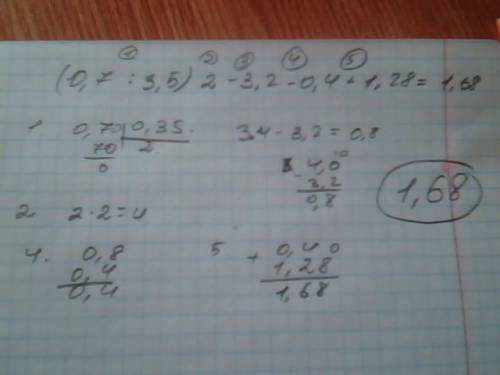 1 2 3 4 5
(0,7 : 3,5) 2 - 3,2 - 0,4 + 1,28 = 1,68
1 0,70 0,35
70 2
0
3.4 - 3,2 = 0,8
4,0
- 3,2
0,8
1,68
2 2·2=4
4. 0,8
0,4
0,4
5 + 0,40
1,28
1,68